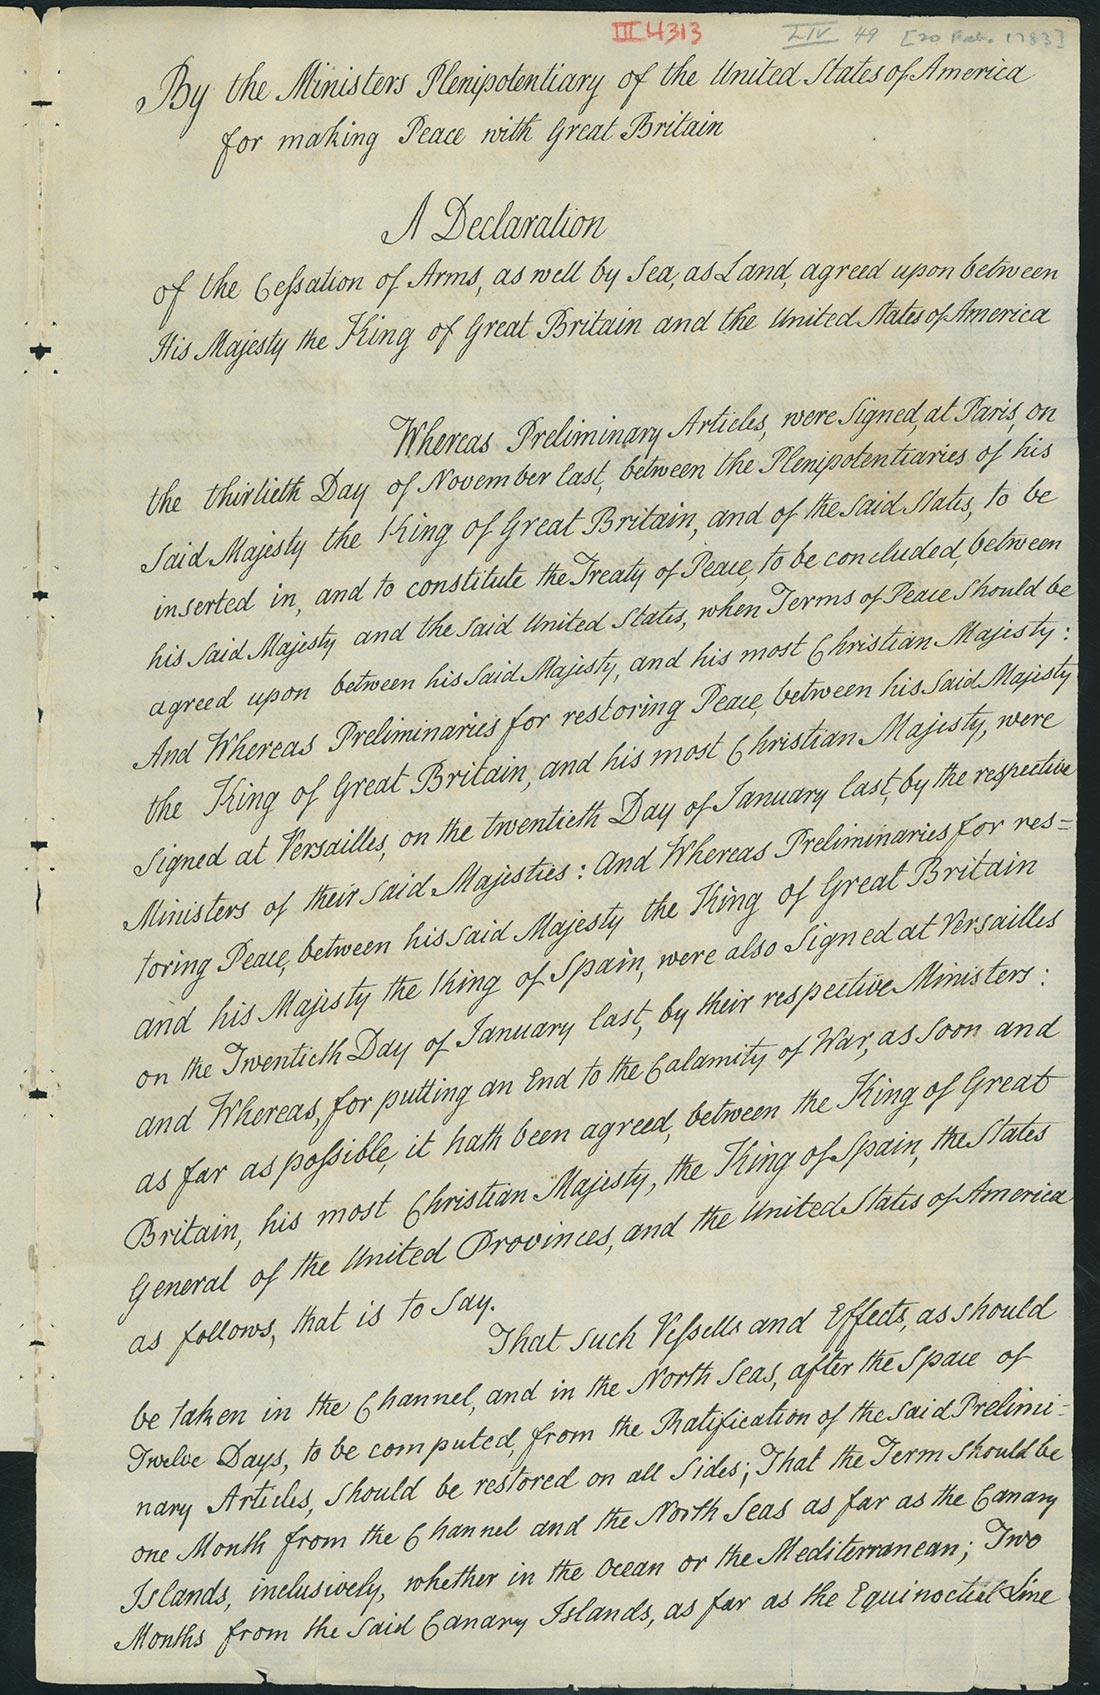 III 4313
LIV 49 [20 Feb. 1783]
By the Ministers Plenipotentiary of the United States of America
for making Peace with Great Britain
A Declaration
of the Cessation of Arms, as well by Sea, as Land, agreed upon between
His Majesty the King of Great Britain and the United States of America
Whereas Preliminary Articles, were Signed, at Paris, on
the thirtieth Day of November last, between the Plenipotentiaries of his
Said Majesty the King of Great Britain, and of the Said States, to be
inserted in, and to constitute the Treaty of Peace, to be concluded, between
his Said Majesty and the Said United States, when Terms of Peace Should be
agreed upon between his Said Majesty, and his most Christian Majesty:
And Whereas Preliminaries for restoring Peace, between his Said Majesty
the King of Great Britain, and his most Christian Majesty, were
Signed at Versailles, on the twentieth Day of January last, by the respective
Ministers of their Said Majesties: And Whereas Preliminaries for res=
toring Peace, between his Said Majesty the King of Great Britain
and his Majesty the King of Spain, were also Signed at Versailles
on the Twentieth Day of January last, by their respective Ministers:
and Whereas, for putting an End to the Calamity of War, as Soon and
as far as possible, it hath been agreed, between the King of Great
Britain, his most Christian Majesty, the King of Spain, the States
General of the United Provinces, and the United States of America
as follows, that is to Say.
That Such Vessells and Effects, as Should
be taken in the Channel, and in the North Seas, after the Space of
Twelve Days, to be computed, from the Ratification of the Said Prelimi=
nary Articles, Should be restored on all Sides; That the Term Should be
one Month from the Channel and the North Seas as far as the Canary
Islands, inclusively, whether in the Ocean or the Mediterranean; Two
Months from the Said Canary Islands, as far as the Equinoctial Line